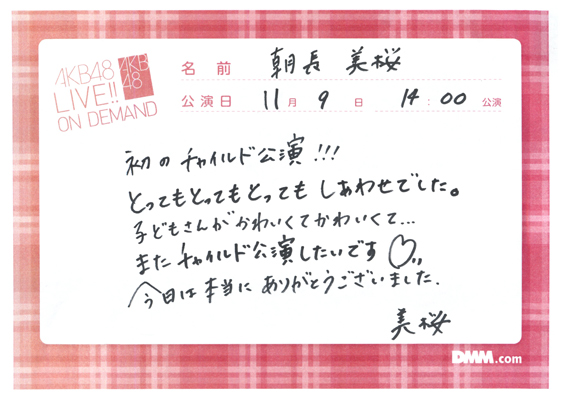 AKB48
LIVE!!
ON DEMAND
AKB
48
名前 朝長 美桜
公演日 11月 9日 14:00 公演
初のチャイルド公演!!!
とってもとってもとっても しあわせでした。
子どもさんがかわいくてかわいくて...
またチャイルド公演したいです♡
今日は本当にありがとうございました.
美桜
DMM.com